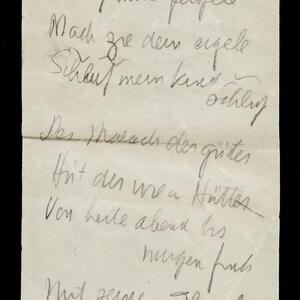 Mach zie dein eigele
Schluf mein kind
schluf
Der Malach der güter
Hit der wie a Hütter
Von heite abend bis
morgen früh
Mit